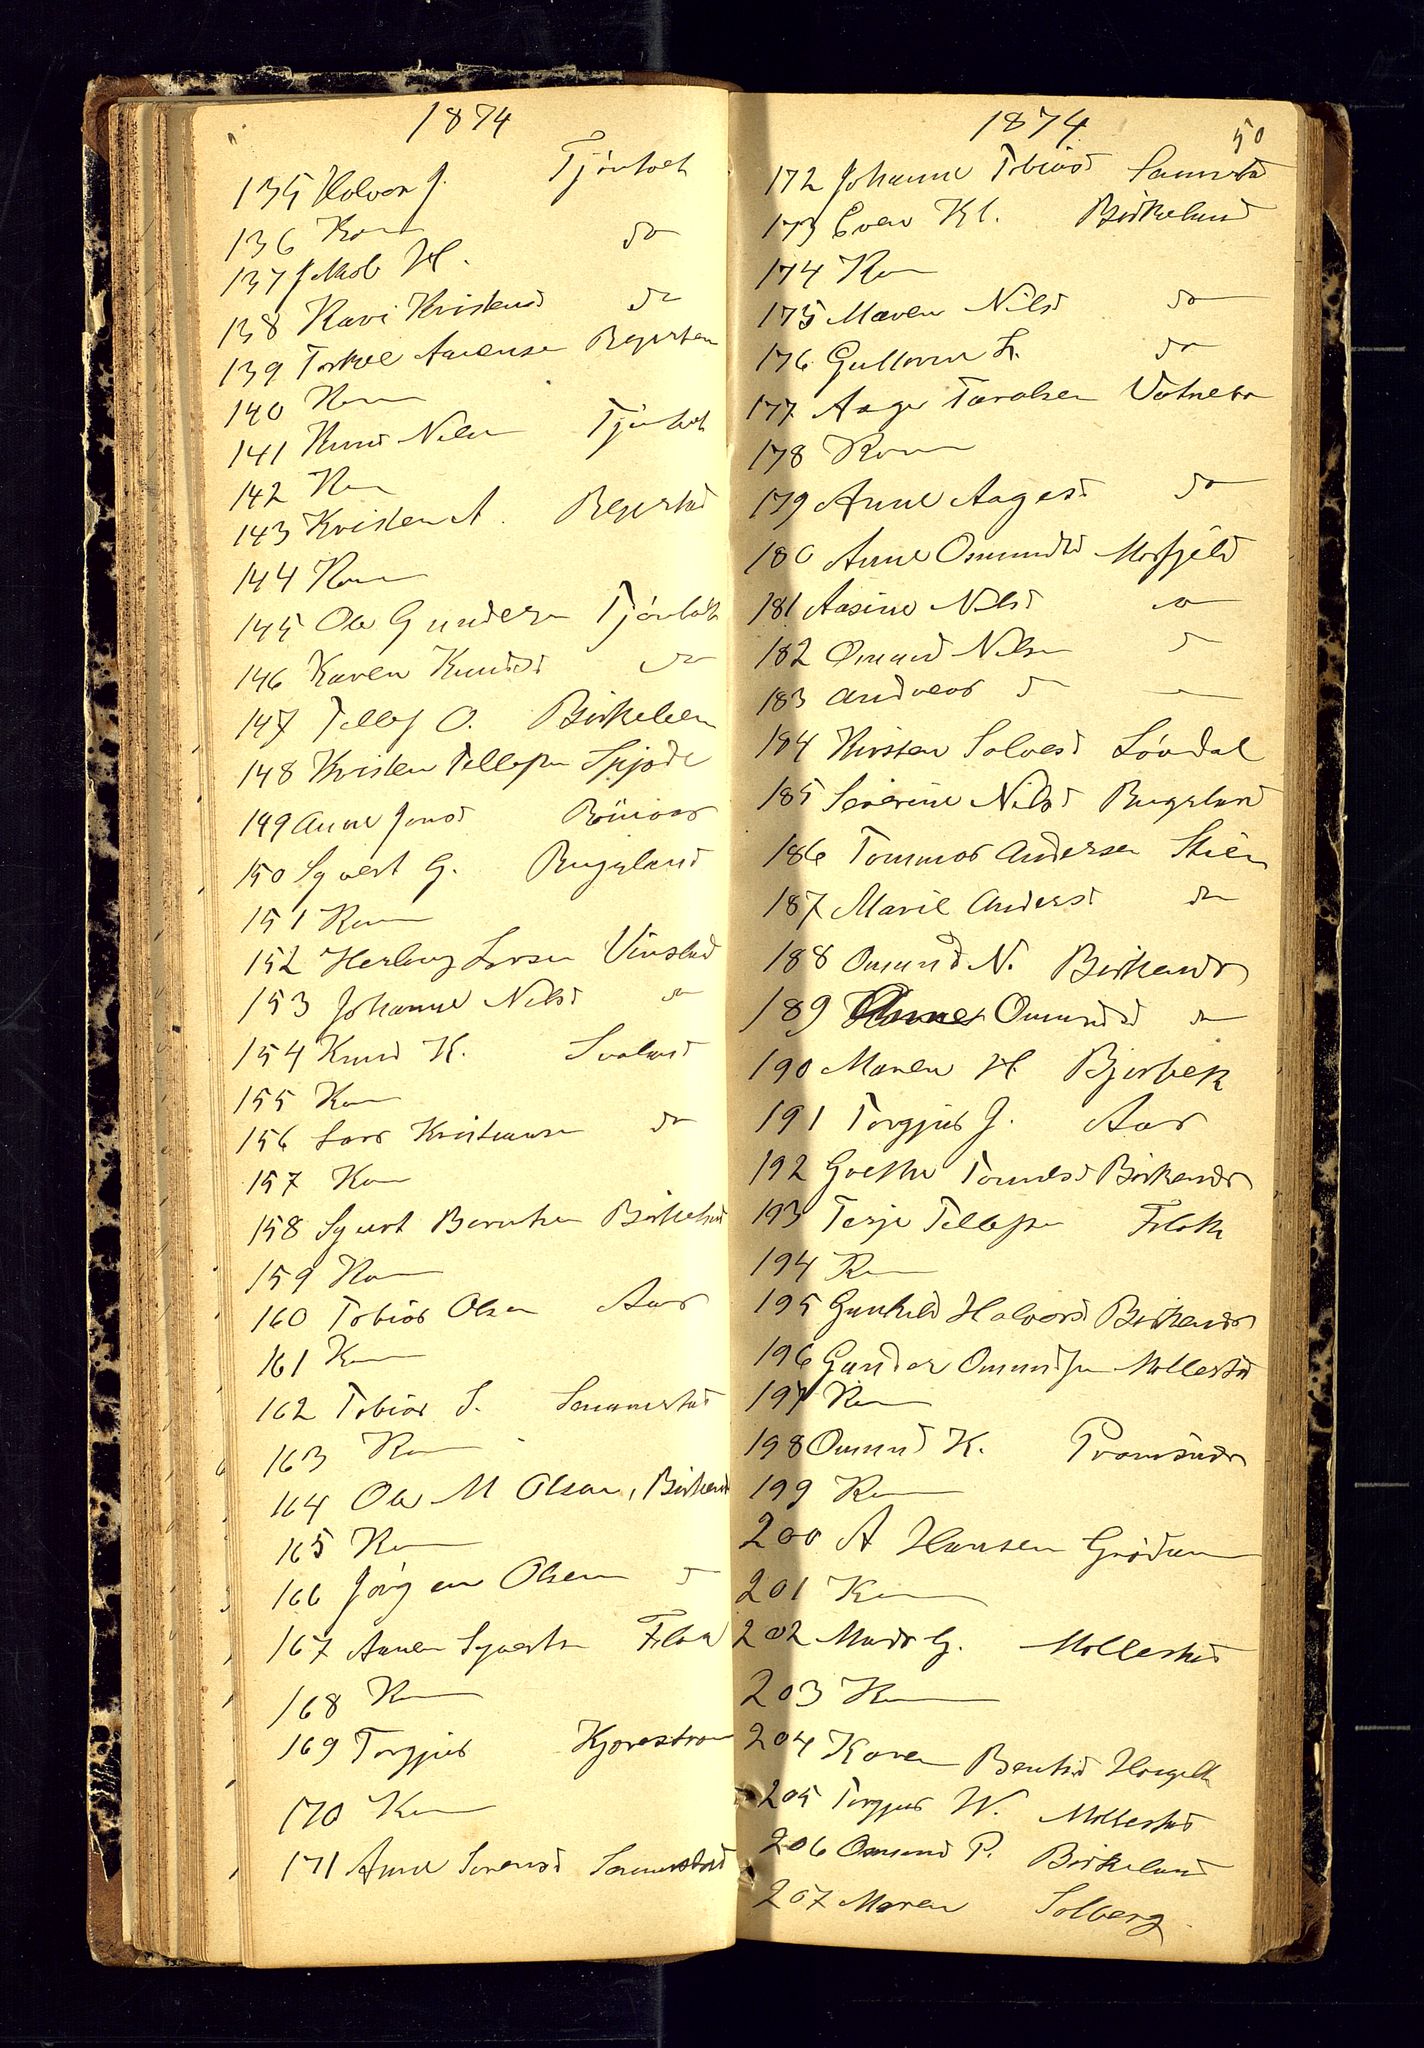 1874
135 Halvor J. Tjöntveit
136 Kone
137 Jakob H. do
138 Kari Kristensd do
139 Torkel Aanensen
140 Kone
141 Knud Nilsen Tjöntveit
142 Kone
143 Kristen A.
144 Kone
145 Ole Gundersen Tjöntveit
146 Karen Knudsd do
147 Tellef O. Birkeland
148 Kristen Tellefsen
149 Anne Jensd
150 Syvert G.
151 Kone
152 Larsen Vinstad
153 Johanne Nilsd do
154 Knud K. Svaland
155 Kone
156 Lars Kristiansen do
157 Kone
158 Syvert Berntsen Birkeland
159 Kone
160 Tobias Olsen Aas
161 Kone
162 Tobias S. Senumstad
163 Kone
164 Ole M Olsen, Birkenæs
165 Kone
166 Jörgen Olsen do
167 Syvertsen Flak
168 Kone
169 Torgjus Kjorestrøm
170 Kone
171 Anne Sorensd Senumstad
1874
50
172 Johanne Tobiasd Senumstad
173 Even Kl. Birkeland
174 Kone
175 Maren Nilsd do
176 do
177 Aage Taralsen Vatnebu
178 Kone
179 Anne Aagesd do
180 Anne Osmundsd Mosfjeld
181 Aasine Nilsd do
182 Osmund Nilsen do
183 Andreas do do
184 Kirsten Salvesd Lövdal
185 Severine Nilsd
186 Tommas Andersen Stien
187 Marie Andersd do
188 Osmund N. Birkenæs
189 Anne Osmundsd do
190 Maren H Bjorbek
191 Torgjus J. Aas
192 Tomesd Birkenæs
193 Terje Tellefsen Flak
194 Kone
195 Gunhild Halvorsd Birkenæs
196 Gunder Osmundsen Mollestad
197 Kone
198 Osmund K.
199 Kone
200 A Hansen Grödum
201 Kone
202 Mads G. Mollestad
203 Kone
204 Karen Bentsd
205 Torgjus W. Mollestad
206 Osmund P. Birkeland
207 Maren Solberg